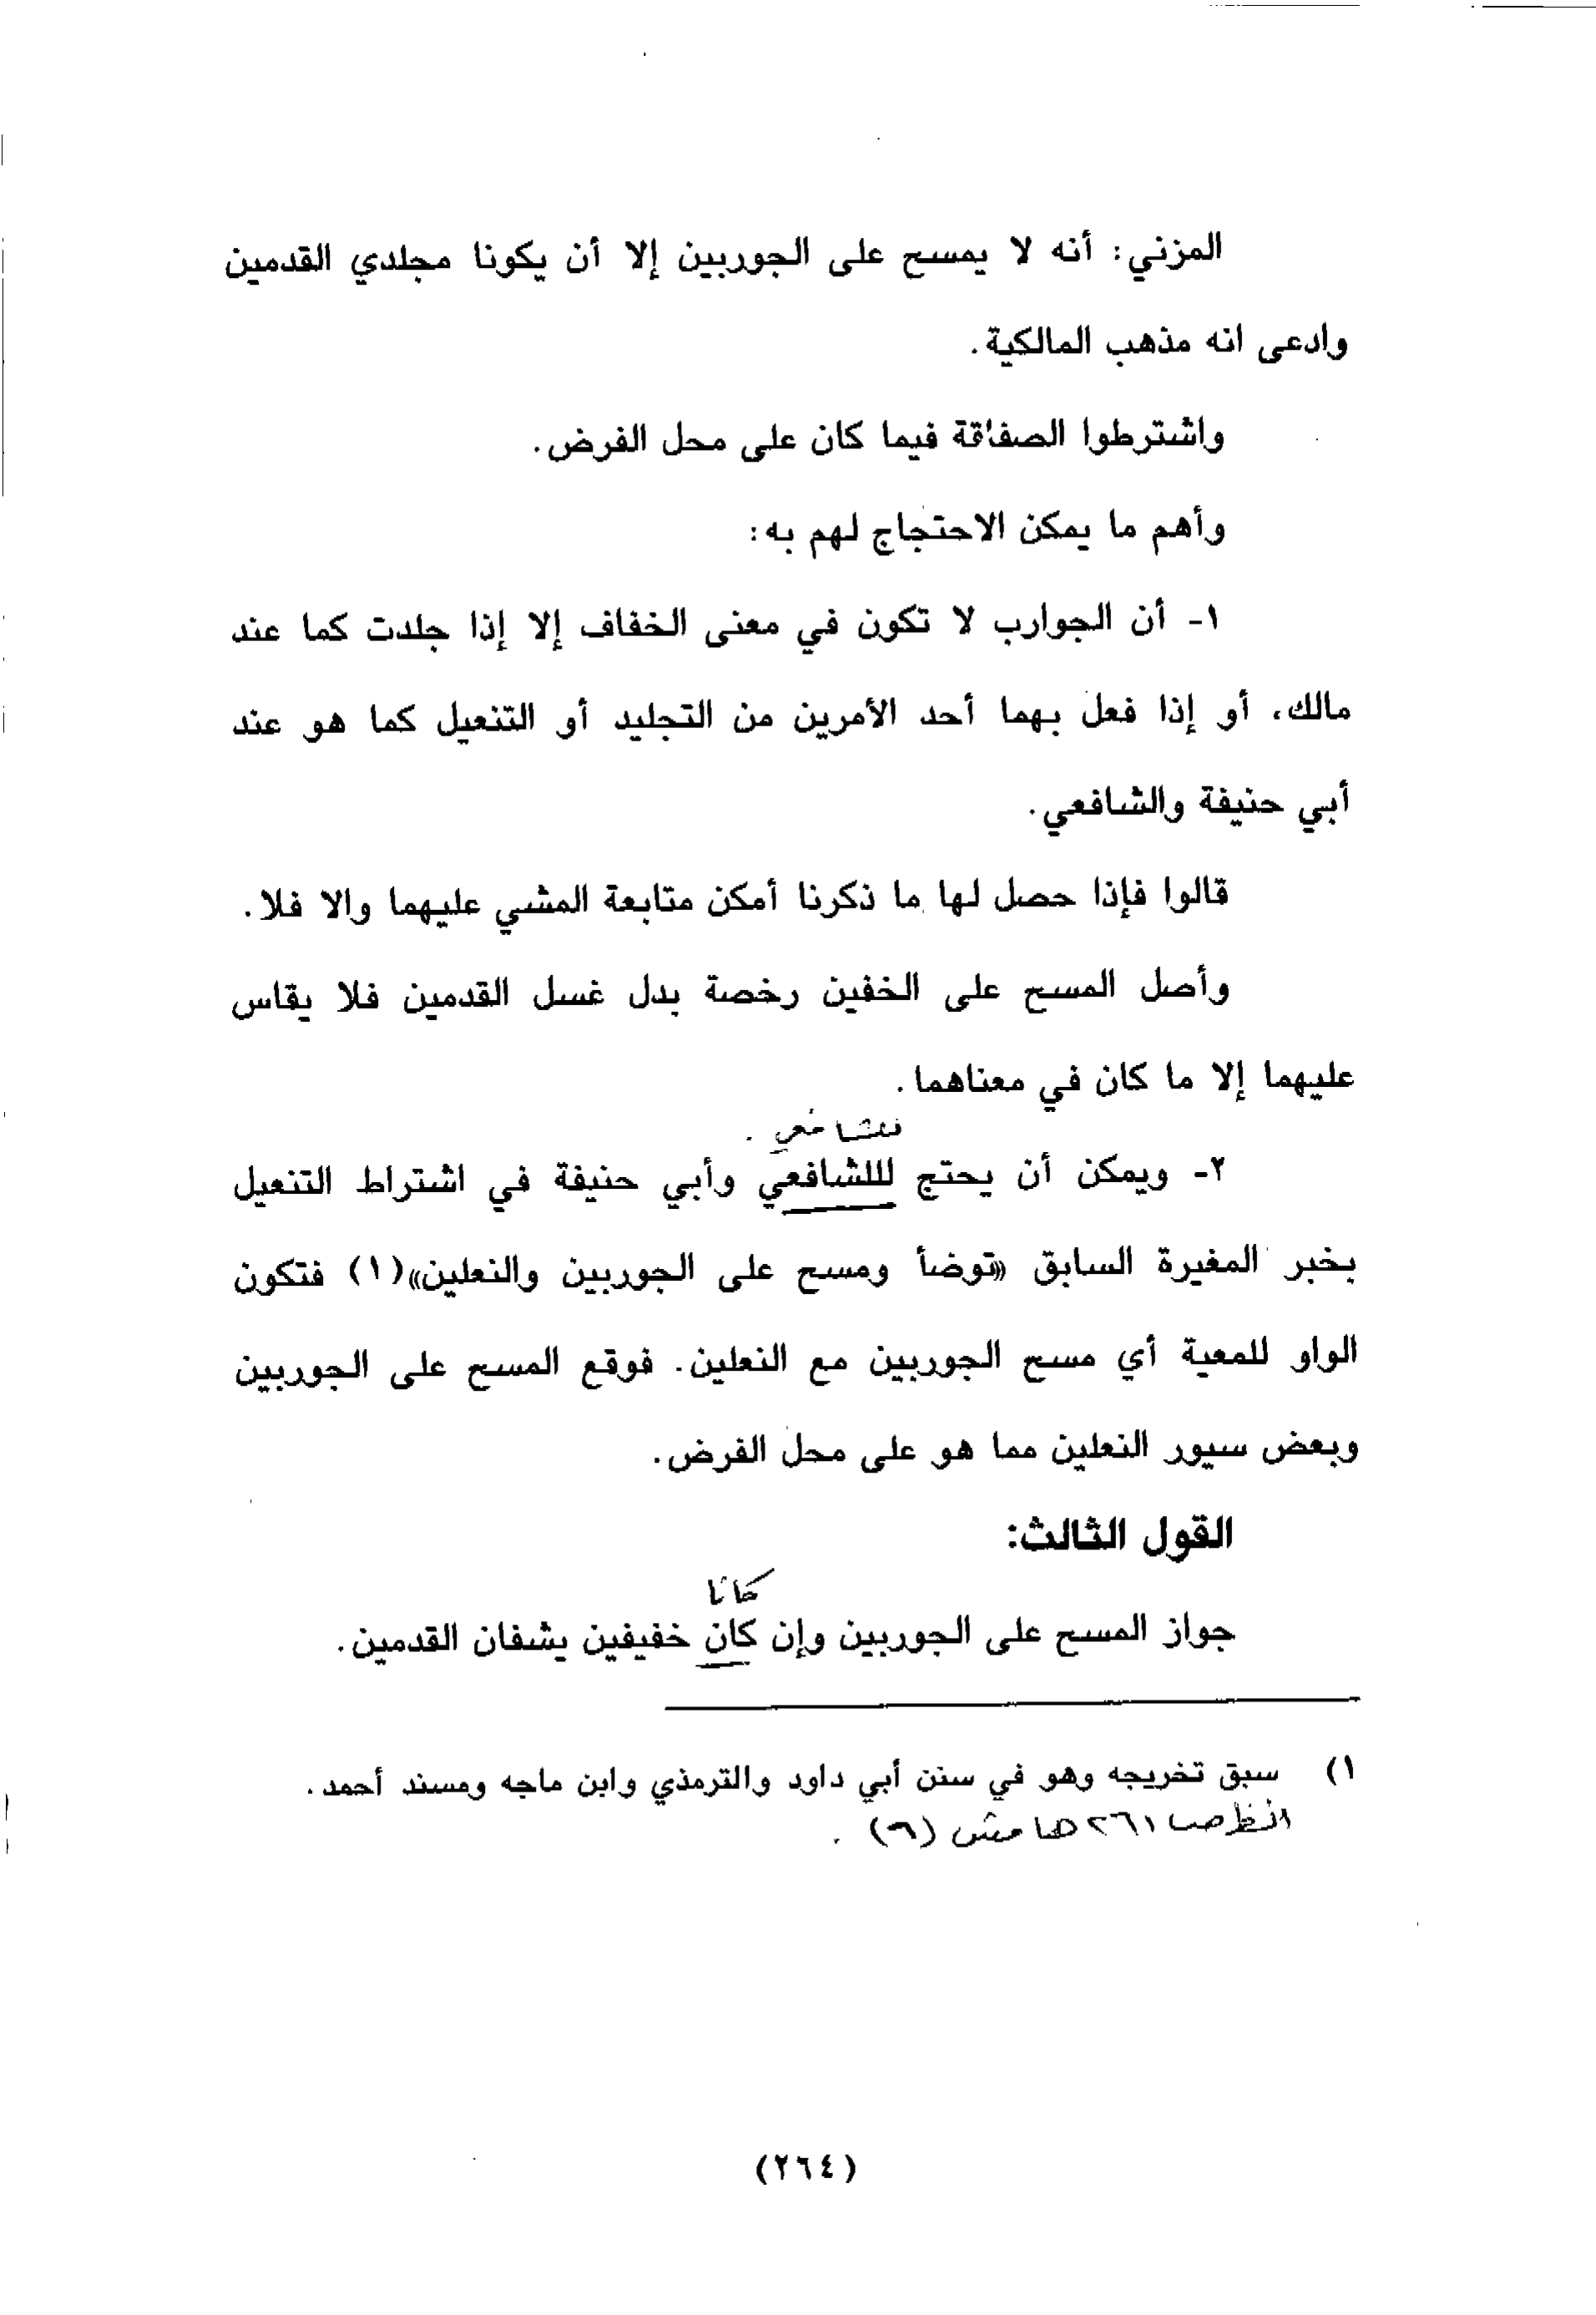 المزني: أنه لا يمسح على الجوربين إلا أن يكونا مجلدي القدمين
وادعى انه مذهب المالكية.
واشترطوا الصفاقة فيما كان على محل الفرض.
وأهم ما يمكن الاحتجاج لهم به:
١- أن الجوارب لا تكون في معنى الخفاف إلا إذا جلدت كما عند
مالك، أو إذا فعل بهما أحد الأمرين من التجليد أو التنعيل كما هو عند
أبي حنيفة والشافعي.
قالوا فإذا حصل لها ما ذكرنا أمكن متابعة المشي عليهما والا فلا.
وأصل المسح على الخفين رخصة بدل غسل القدمين فلا يقاس
عليهما إلا ما كان في معناهما.
للشافعي.
٢- ويمكن أن يحتج لللشافعي وأبي حنيفة في اشتراط التنعيل
بخبر المغيرة السابق «توضأ ومسح على الجوربين والنعلين»(١) فتكون
الواو للمعية أي مسح الجوربين مع النعلين. فوقع المسح على الجوربين
وبعض سيور النعلين مما هو على محل الفرض.
القول الثالث:
كانا
جواز المسح على الجوربين وإن كان خفيفين يشفان القدمين.
١) سبق تخريجه وهو في سنن أبي داود والترمذي وابن ماجه ومسند أحمد.
انظر صـ ٢٦١ هامش (٦).
(٢٦٤)